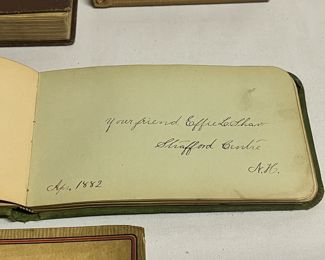 Your friend Effie L. Shaw
Strafford Centre
N.H.
Apr. 1882